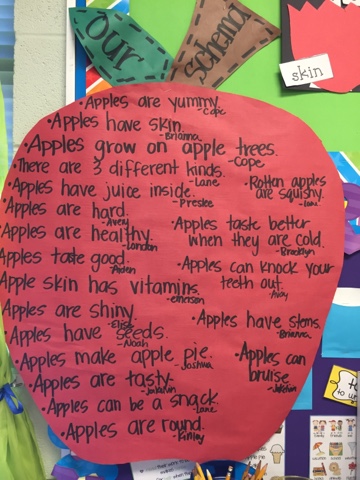 our
schema
skin
•Apples are yummy.
-Cope
•Apples have skin.
-Brianna
•Apples grow on apple trees.
-Cope
•There are 3 different kinds.
-Lane
•Apples have juice inside.
-Preslee
•Apples are hard.
-Avery
Apples are healthy.
-London
Apples taste good.
-Aiden
Apple skin has vitamins.
-Emerson
Apples are shiny.
Apples have seeds.
-Noah
•Apples make apple pie.
-Joshua
•Apples are tasty.
•Apples can be a snack.
-Lane
•Apples are round.
-Kinley
•Rotten apples
are squishy.
-Lane
•Apples taste better
when they are cold.
-Brooklyn
•Apples can knock your
teeth out.
•Apples have stems.
-Brianna
•Apples can
bruise